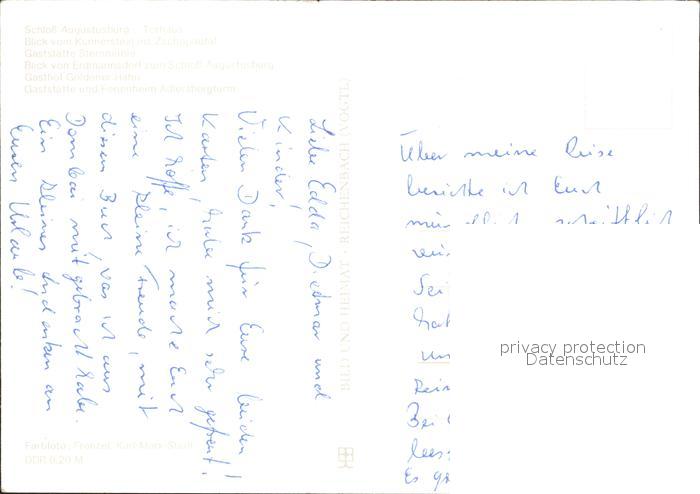 Schloß Augustusburg - Torhaus
Blick vom Kunnerstein ins Zschopautal
Gaststätte Sternmühle
Blick von Erdmannsdorf zum Schloß Augustusburg
Gasthof Goldener Hahn
Gaststätte und Ferienheim Adlersbergturm
Liebe Edda, Dietmar und
Kinder!
Vielen Dank für Eure beiden
Karten, habe mich sehr gefreut!
Ich hoffe, ich mache Euch
eine kleine Freude, mit
diesem Buch, was ich aus
Dombai mitgebracht habe.
Ein kleines Andenken an
Euren Urlaub!
Farbfoto: Frenzel, Karl-Marx-Stadt
DDR 0,20 M
BILD UND HEIMAT · REICHENBACH (VOGTL)
Über meine Reise
berichte ich Euch
mündlich, schriftlich
privacy protection
Datenschutz
Bei
Es